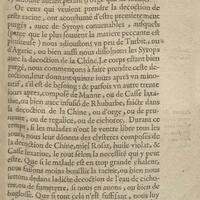 Or ceux qui veulent prendre la decoction de
ceste racine, ont accoustumé d'estre premierement
purgés, auec de Syrops conuenables, ausquels
(parce que le plus souuent la matiere peccante est
pituiteuse) nous adioustons vn peu de Turbit, ou
d'Agaric, ou bien aussi nous dissoluons les Syrops
auec la decoction de la Chine. Le corps estant bien
purgé, nous commençons à faire prendre ceste de-
coction, leur donnant quinze iours après vn minoratif,
s'il en est de besoing: & parfois vn autre trente
iours après, composé de Manne, ou de Casse laxa-
tiue, ou bien auec infusiō de Rhubarbe, faicte dans
la decoction de la Chine, ou d'orge, ou de pru-
neaux, ou de regalice, ou de cichorée. Durant ce
temps, si les malades n'ont le ventre libre tous les
iours, nous leur donnons des clysteres composés de
la decoction de Chine, miel Rosat, huile violat, &
Casse laxatiue, le tout selon la necessité qui y peut
estre. Que si le malade est en trop grande chaleur,
nous faisons moins bouillir la racine, ou bien nous
destrempons ladicte decoction de l'eau de cicho-
rée, ou de fumeterre, si nous en auons, ou bien de
buglosse. Que si tout cela n'est suffisant, nous luy